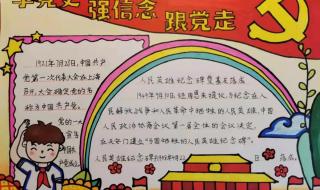 学党史 强信念 跟党走
1921年7月23日,中国共产
党第一次代表大会在上海
召开,大会确定党的名
称为中国共产党。
党的一
人民英雄纪念碑奠基石落成
1949年9月30日
人
民解放战争和人民革命中牺牲的人民英雄,中国
人民政治协商会议第一届全体的会议决定,
在天安门建立"为国牺牲的人民英雄碑"。
人民英雄纪念碑
落成。